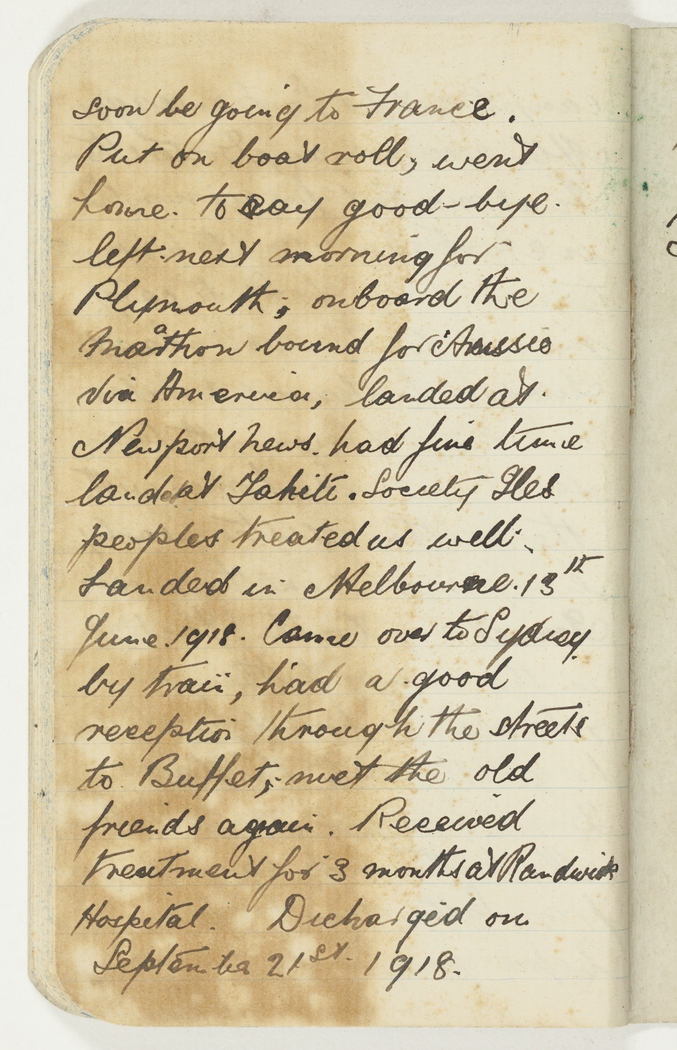 soon be going to France.
Put on boat roll, went
home. to say good-bye.
left next morning for
Plymouth; onboard the
Marathon bound for Aussie
via America, landed at
Newport News. had fine time
landed at Tahiti. Society Iles
peoples treated us well.
Landed in Melbourne. 13th
June. 1918. Came over to Sydney
by train, had a good
reception through the streets
to Buffet; met the old
friends again. Received
treatment for 3 months at Randwick
Hospital. Discharged on
September 21st. 1918.